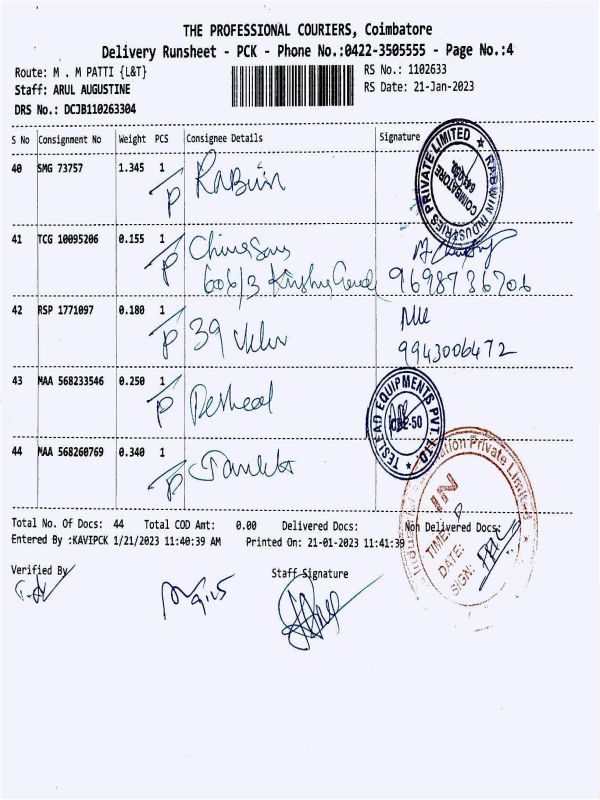 THE PROFESSIONAL COURIERS, Coimbatore
Delivery Runsheet - PCK - Phone No.:0422-3505555 - Page No.:4
Route: M . M PATTI {L&T}
RS No.: 1102633
Staff: ARUL AUGUSTINE
RS Date: 21-Jan-2023
DRS No.: DCJB110263304
S No Consignment No Weight PCS Consignee Details Signature
40 SMG 73757 1.345 1 P Rabwin
RABWIN INDUSTRIES PRIVATE LIMITED ★
COIMBATORE
41 TCG 10095206 0.155 1 P
606/3 9698736706
42 RSP 1771097 0.180 1 P 39
9943006472
43 MAA 568233546 0.250 1 P
TESLEAD EQUIPMENTS PVT. LTD. ★
CBE-50
44 MAA 568260769 0.340 1 P
Private Limited
IN
TIME:
DATE:
SIGN:
Total No. Of Docs: 44 Total COD Amt: 0.00 Delivered Docs: Non Delivered Docs:
Entered By :KAVIPCK 1/21/2023 11:40:39 AM Printed On: 21-01-2023 11:41:39
Verified By Staff Signature